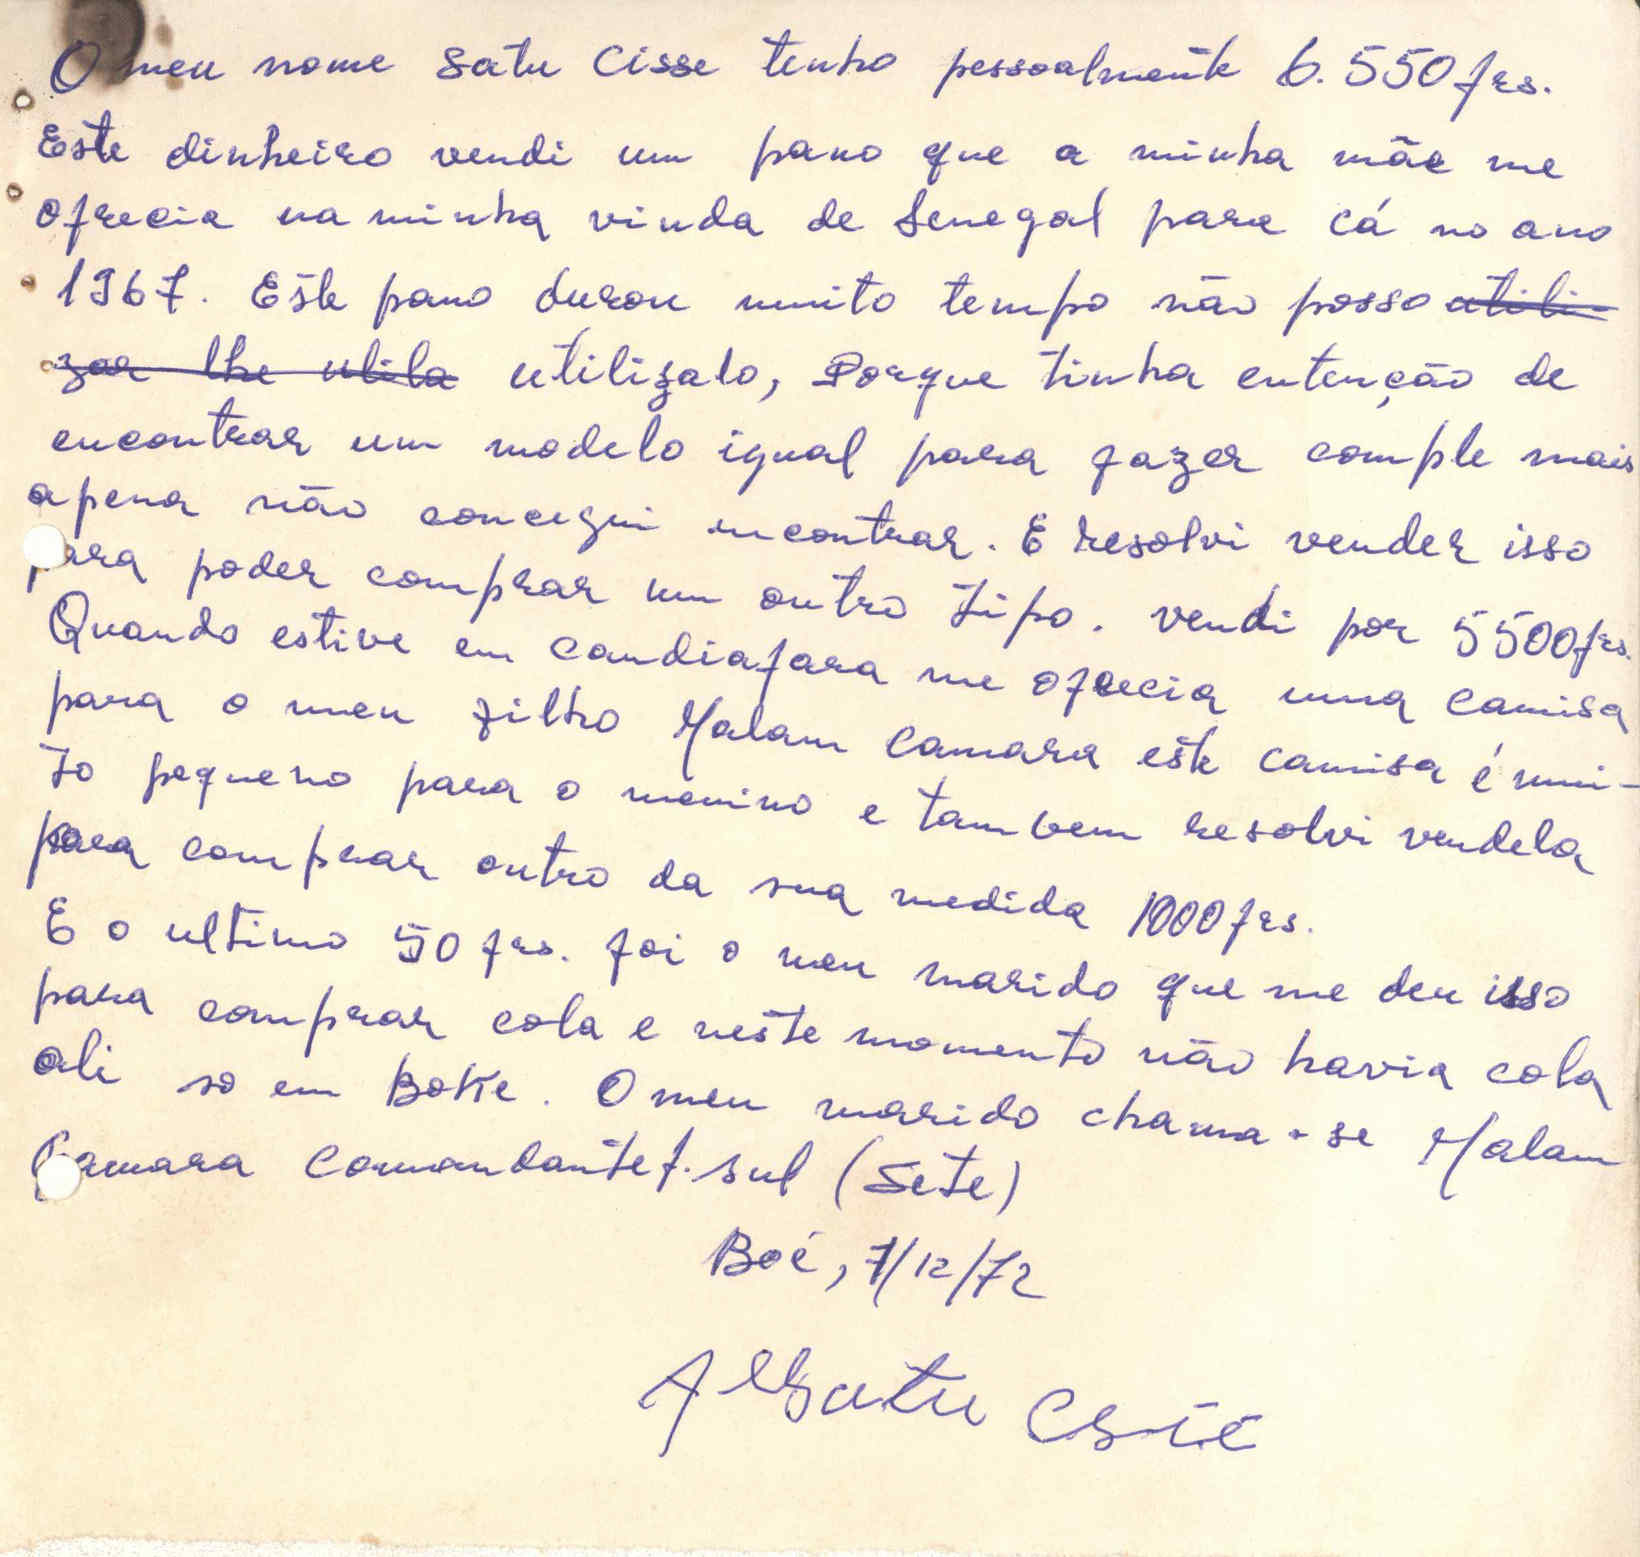 O meu nome Satu Cisse tenho pessoalmente 6.550 frs.
Este dinheiro vendi um pano que a minha mãe me
ofrecia na minha vinda de Senegal para cá no ano
1967. Este pano durou muito tempo não posso utili-
zar lhe utila utilizalo, Porque tinha entenção de
encontrar um modelo igual para fazer comple mais
apena não concegui encontrar. E resolvi vender isso
para poder comprar um outro tipo. vendi por 5500 frs.
Quando estive em Candiafara me ofrecia uma camisa
para o meu filho Malam Camara este camisa é mui-
to pequeno para o menino e tambem resolvi vendela
para comprar outro da sua medida 1000 frs.
E o ultimo 50 frs. foi o meu marido que me deu isso
para comprar cola e neste momento não havia cola
ali so em Boke. O meu marido chama-se Malam
Camara Comandante f. sul (Sete)
Boé, 7/12/72
Satu